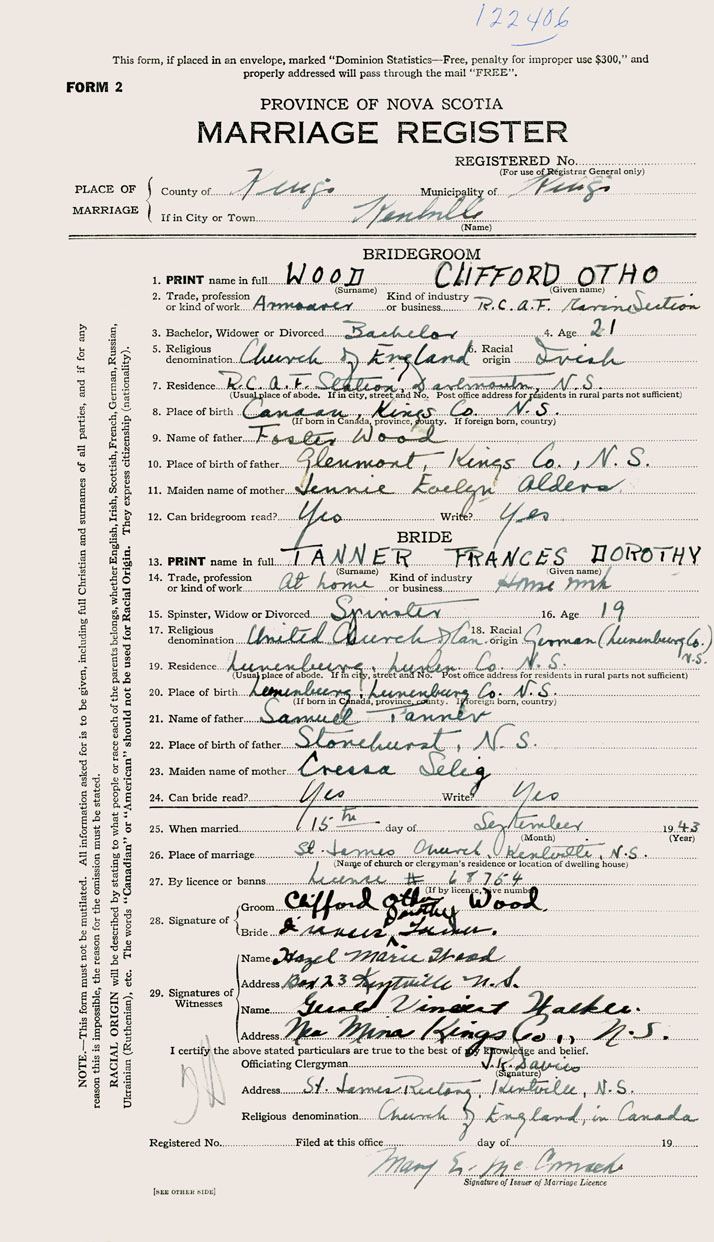 122406
This form, if placed in an envelope, marked "Dominion Statistics—Free, penalty for improper use $300," and
properly addressed will pass through the mail "FREE".
FORM 2
PROVINCE OF NOVA SCOTIA
MARRIAGE REGISTER
REGISTERED No.
(For use of Registrar General only)
PLACE OF MARRIAGE
County of Kings Municipality of Kings
If in City or Town Kentville
(Name)
BRIDEGROOM
1. PRINT name in full WOOD CLIFFORD OTHO
(Surname) (Given name)
2. Trade, profession or kind of work Armourer Kind of industry or business R.C.A.F. Marine Section
3. Bachelor, Widower or Divorced Bachelor 4. Age 21
5. Religious denomination Church of England 6. Racial origin Irish
7. Residence R.C.A.F. Station, Dartmouth, N.S.
(Usual place of abode. If in city, street and No. Post office address for residents in rural parts not sufficient)
8. Place of birth Canaan, Kings Co. N.S.
(If born in Canada, province, county. If foreign born, country)
9. Name of father Foster Wood
10. Place of birth of father Glenmont, Kings Co., N.S.
11. Maiden name of mother Jennie Evelyn Alders
12. Can bridegroom read? Yes Write? Yes
BRIDE
13. PRINT name in full TANNER FRANCES DOROTHY
(Surname) (Given name)
14. Trade, profession or kind of work At home Kind of industry or business Home
15. Spinster, Widow or Divorced Spinster 16. Age 19
17. Religious denomination United Church of Can. 18. Racial origin German (Lunenburg Co.) N.S.
19. Residence Lunenburg, Lunen Co. N.S.
(Usual place of abode. If in city, street and No. Post office address for residents in rural parts not sufficient)
20. Place of birth Lunenburg, Lunenburg Co. N.S.
(If born in Canada, province, county. If foreign born, country)
21. Name of father Samuel Tanner
22. Place of birth of father Stonehurst, N.S.
23. Maiden name of mother Cressa Selig
24. Can bride read? Yes Write? Yes
25. When married 15th day of September 1943
(Month) (Year)
26. Place of marriage St. James Church, Kentville, N.S.
(Name of church or clergyman's residence or location of dwelling house)
27. By licence or banns License # 68754
(If by licence, give number)
28. Signature of
Groom Clifford Otho Wood
Bride Frances Dorothy Tanner.
29. Signatures of Witnesses
Name Hazel Marie Wood
Address Box 23 Kentville N.S.
Name Gerald Vincent Walker.
Address New Minas Kings Co., N.S.
I certify the above stated particulars are true to the best of my knowledge and belief.
Officiating Clergyman J.R. Davies
(Signature)
Address St. James Rectory, Kentville, N.S.
Religious denomination Church of England, in Canada
Registered No. Filed at this office day of 19
Mary E.
Signature of Issuer of Marriage Licence
[SEE OTHER SIDE]
NOTE.—This form must not be mutilated. All information asked for is to be given, including full Christian and surnames of all parties, and if for any
reason this is impossible, the reason for the omission must be stated.
RACIAL ORIGIN will be described by stating to what people or race each of the parents belongs, whether English, Irish, Scottish, French, German, Russian,
Ukrainian (Ruthenian), etc. The words "Canadian" or "American" should not be used for Racial Origin. They express citizenship (nationality).